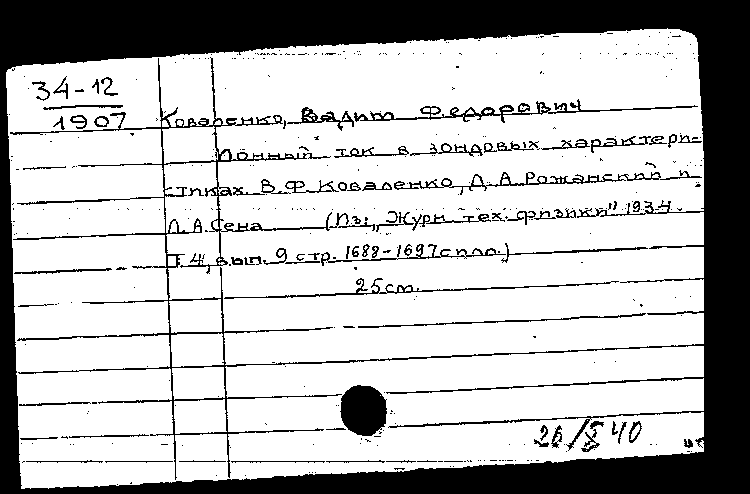 34-12
1907
Коваленко, Вадим Федорович
Ионный ток в зондовых характери-
стиках. В.Ф. Коваленко, Д.А. Рожанский и
Л.А. Сена (Из: „Журн. тех. физики" 1934.
Т. 4, вып. 9 стр. 1688-1697 с илл.)
25 см.
26/X 40